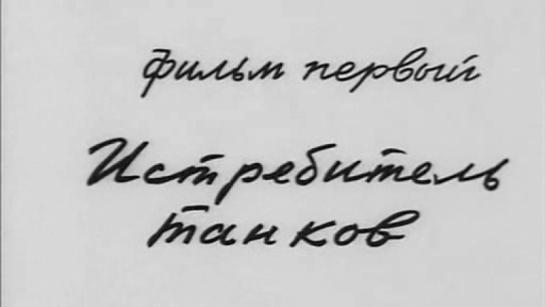 фильм первый
Истребитель
танков